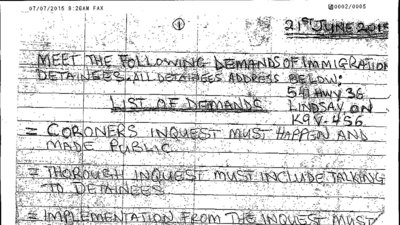 07/07/2015 9:28AM FAX
0002/0005
1
21ST JUNE 2015
MEET THE FOLLOWING DEMANDS OF IMMIGRATION
DETAINEES. ALL DETAINEES ADDRESS BELOW:
541 HWY 36
LIST OF DEMANDS
LINDSAY ON
K9V-4S6
= CORONERS INQUEST MUST HAPPEN AND
MADE PUBLIC
= THOROUGH INQUEST MUST INCLUDE TALKING
TO DETAINEES
= IMPLEMENTATION FROM THE INQUEST MUST